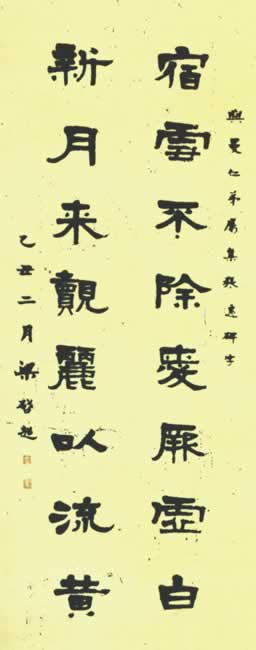 興曼仁弟屬集張遷碑字
宿雲不除爰厥虛白
新月来覿麗以流黄
乙丑二月梁啓超